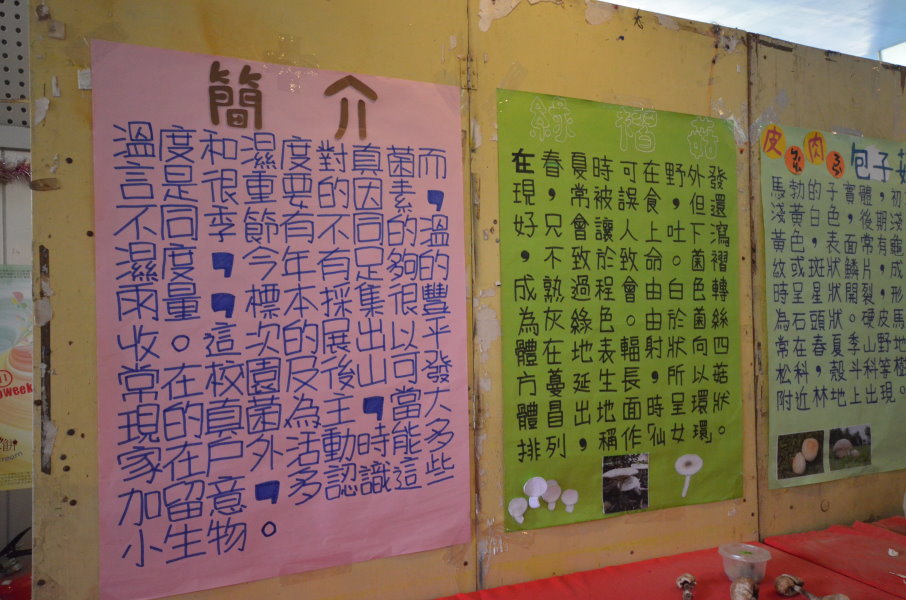 簡介
溫度和濕度對真菌而
言是很重要的因素，
不同季節有不同的溫
濕度，今年有足夠的
雨量，標本採集很豐
收。這次的展出以平
常在校園及後山可發
現的真菌為主，當大
家在戶外活動時能多
加留意，多認識這些
小生物。
綠褶菇
在春夏時可在野外發
現，常被誤食，但還
好，只會讓人上吐下瀉
，不致於致命。菌褶
成熟過程會由白色轉
為灰綠色。由於菌絲
體在地表輻射狀向四
方蔓延生長，所以菇
體冒出地面時呈環狀
排列，稱作「仙女環」。
皮肉
包子菇
馬勃的子實體，初
淺黃白色，後期淺
黃色，表面常有龜
紋或斑狀鱗片，成
時呈星狀開裂，形
為石頭狀。硬皮馬
常在春夏季山野地
松科，殼斗科等樹
附近林地上出現。
week